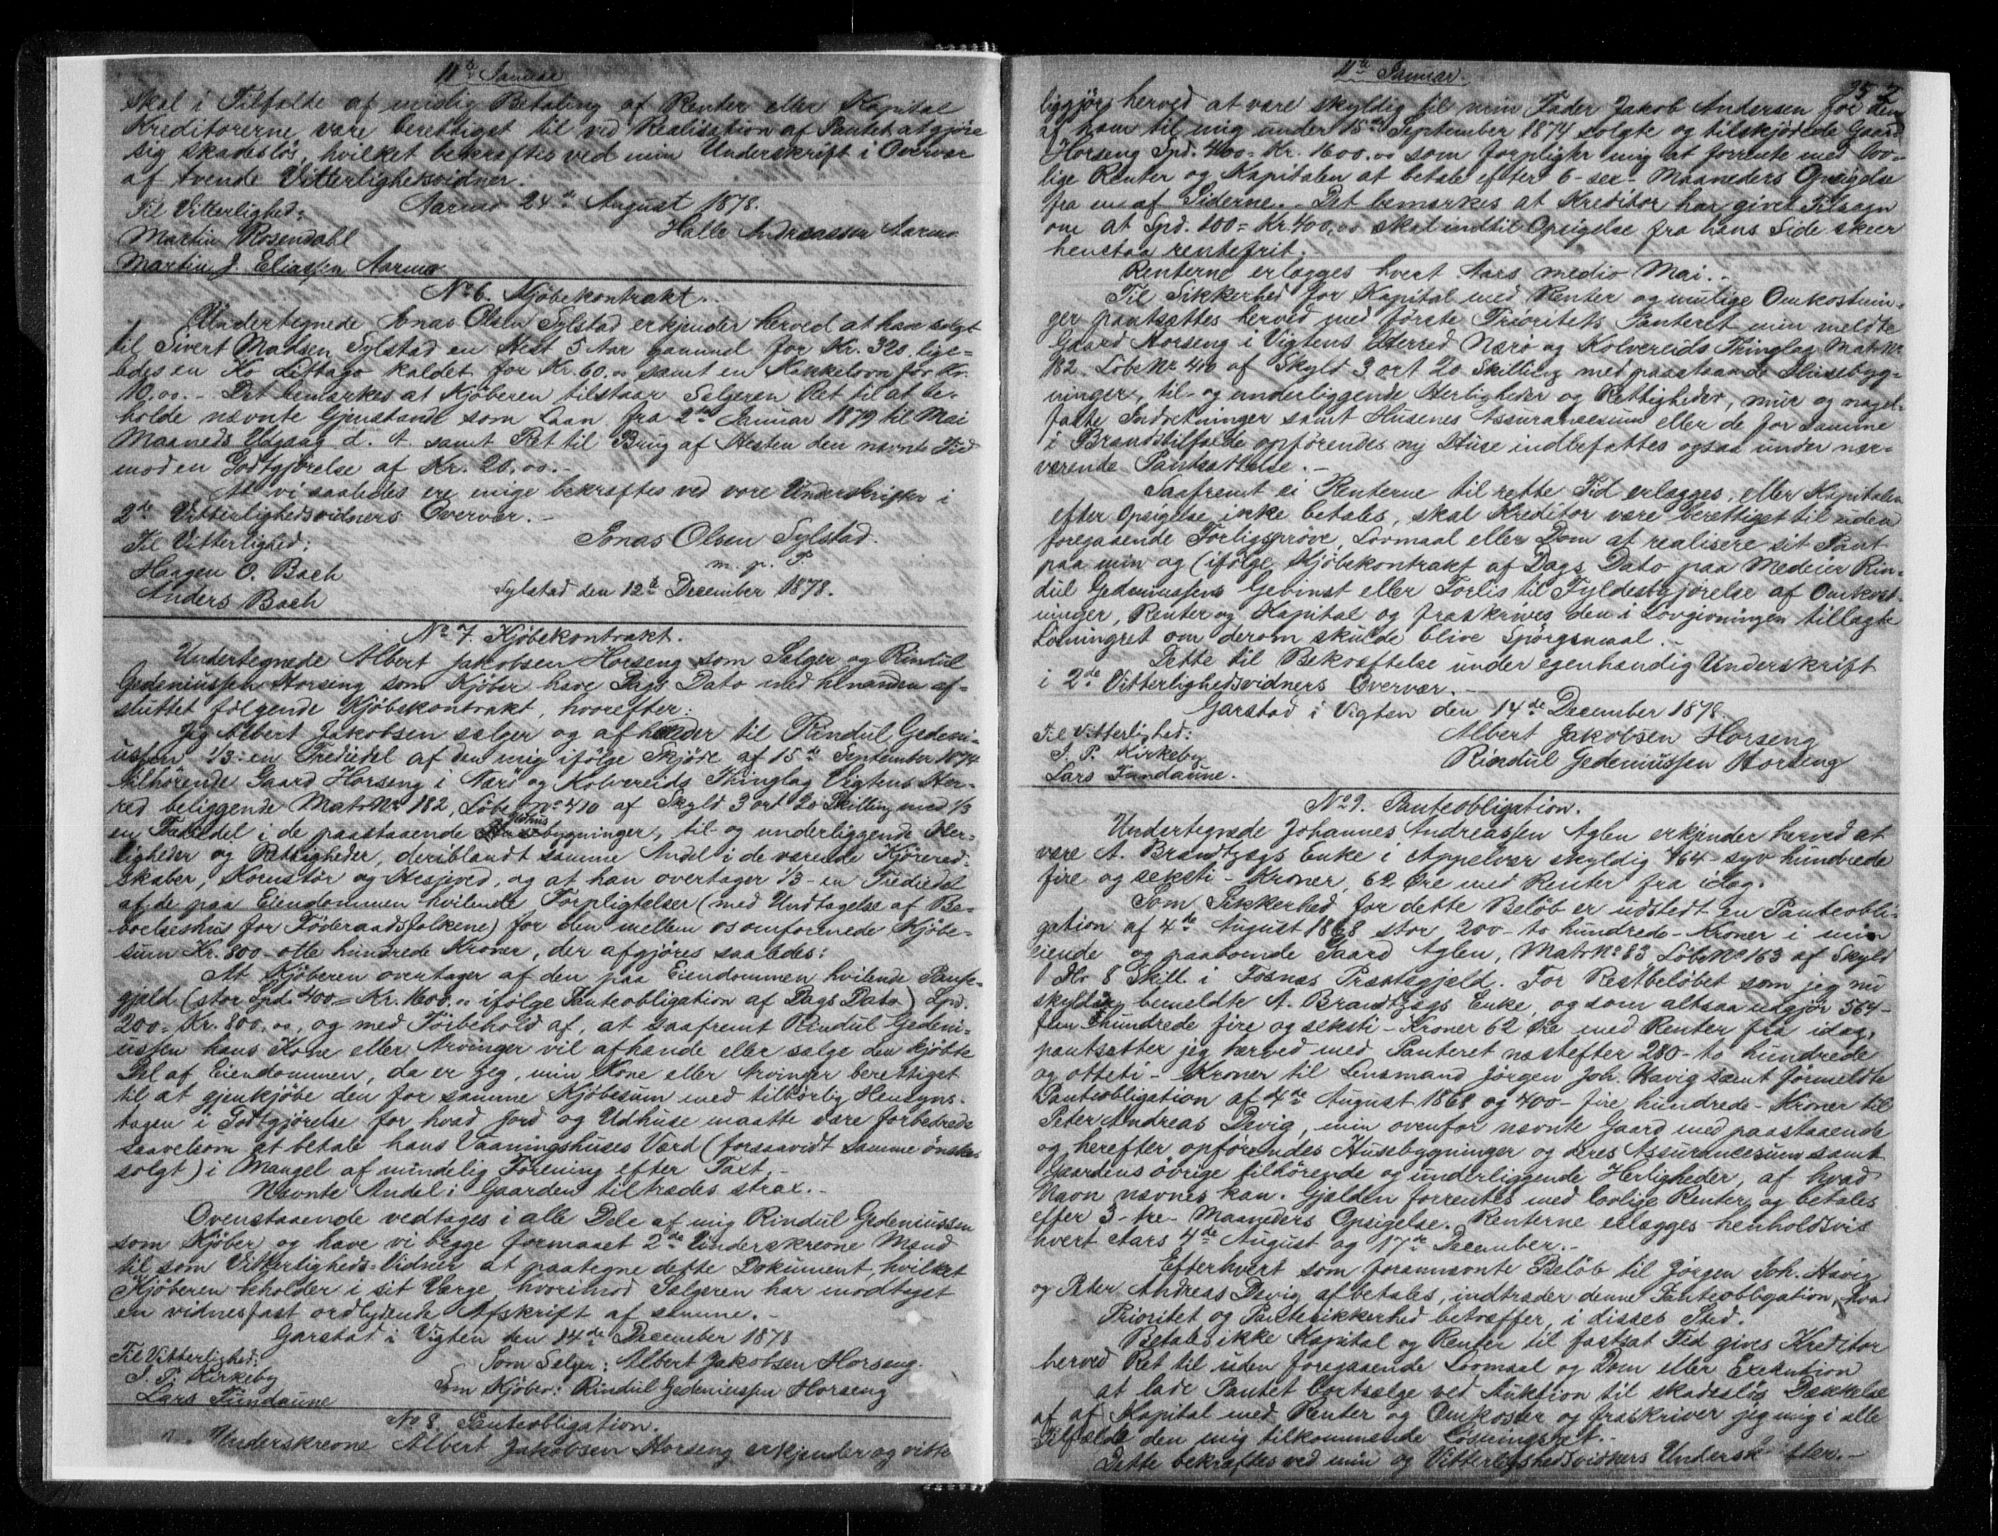 11te Januar
skal i Tilfælde af mislig Betaling af Renter eller Kapital
Kreditorerne være berettiget til ved Realisation af Pantet at gjøre
sig skadesløs, hvilket bekræftes ved min Underskrift i Overvær
af tvende Vitterlighedsvidner.
Aarmo 24de August 1878.
Til Vitterlighed:
Halle Andreassen Aarmo
Martin Rosendahl
Martin J. Eliassen Aarmo
No 6. Kjøbekontrakt.
Undertegnede Jonas Olsen Sylstad erkjender herved at have solgt
til Sivert Madsen Sylstad en Hest 5 Aar gammel for Kr. 320, lige-
ledes en Ko Liftago kaldet for Kr. 60.00 samt en Kakkelovn for Kr.
10.00. - Det bemærkes at Kjøberen tilstaar Sælgeren Ret til at be-
holde nævnte Gjenstande som Laan fra 2den Januar 1879 til Mai
Maaneds Udgang d. A. samt Ret til Brug af Hesten den nævnte Tid
mod en Godtgjørelse af Kr. 20.00.-
At vi saaledes ere enige bekræftes ved vore Underskrifter i
2de Vitterlighedsvidners Overvær. -
Til Vitterlighed:
Jonas Olsen Sylstad.
m. p. P.
Haagen O. Bach
Anders Bach
Sylstad den 12te December 1878.
No 7. Kjøbekontrakt.
Undertegnede Albert Jakobsen Horseng som Sælger og Rindul
Gedeniussen Horseng som Kjøber have Dags Dato med hinanden af-
sluttet følgende Kjøbekontrakt, hvorefter:
Jeg Albert Jakobsen sælger og afhænder til Rindul Gedeni-
ussen 1/3: en Trediedel af den mig ifølge Skjøde af 15de September 1874
tilhørende Gaard Horseng i Nærø og Kolvereids Thinglag Vigtens Her-
red beliggende Mats No 182, Løbe No 410 af Skyld 3 ort 20 Skilling med 1/3
en Trediedel i de paastaaende Udhusbygninger, til og underliggende Her-
ligheder og Rettigheder, deriblandt samme Andel i de værende Kjørered-
skaber, Kornstør og Hesjeved, og at han overtager 1/3 - en Trediedel
af de paa Eiendommen hvilende Forpligtelser (med Undtagelse af Be-
boelseshus for Føderaadsfolkene) for den mellem os omforenede Kjøbe-
sum Kr. 800. otte hundrede Kroner, der afgjøres saaledes:
At Kjøberen overtager af den paa Eiendommen hvilende Pante-
gjeld (stor Spd. 400 = Kr. 1600.00 ifølge Panteobligation af Dags Dato) Spd.
200 = Kr. 800.00, og med Forbehold af, at saafremt Rindul Gedeni-
ussen hans Kone eller Arvinger vil afhænde eller sælge den kjøbte
Del af Eiendommen, da er jeg, min Kone eller Arvinger berettiget
til at gjenkjøbe den for samme Kjøbesum med tilbørlig Hensyns-
tagen i Godtgjørelse for hvad Jord og Udhuse maatte være forbedrede
saavelsom at betale hans Vaaningshuses Værd (forsaavidt samme ønskes
solgt) i Mangel af mindelig Forening efter Taxt. -
Nævnte Andel i Gaarden tiltrædes strax. -
Ovenstaaende vedtages i alle Dele af mig Rindul Gedeniussen
som Kjøber og have vi begge formaaet 2de Underskrevne Mænd
til som Vitterligheds-Vidner at paategne dette Dokument, hvilket
Kjøberen beholder i sit Værge, hvorimod Sælgeren har modtaget
en vidnesfast ordlydende Afskrift af samme. -
Garstad i Vigten den 14de December 1878
Til Vitterlighed:
Som Sælger: Albert Jakobsen Horseng.
J. P. Kirkeby
Som Kjøber: Rindul Gedeniussen Horseng
Lars Fundaune
No 8. Panteobligation.
Underskrevne Albert Jakobsen Horseng erkjender og vitter-
11te Januar.
liggjør herved at være skyldig til min Fader Jakob Andersen for den
af ham til mig under 15de September 1874 solgte og tilskjødede Gaard
Horseng Spd. 400 = Kr. 1600.00 som forpligter mig at forrente med lov-
lige Renter og Kapitalen at betale efter 6 - sex - Maaneders Opsigelse
fra en af Siderne. - Det bemærkes at Kreditor har givet Tilsagn
om at Spd. 100 = Kr. 400,00 skal indtil Opsigelse fra hans Side skeer
henstaa rentefrit.
Renterne erlægges hvert Aars medio Mai. -
Til Sikkerhed for Kapital med Renter og mulige Omkostnin-
ger pantsættes herved med første Prioritets Panteret min meldte
Gaard Horseng i Vigtens Herred Nærø og Kolvereids Thinglag Mats No.
182. Løbe No 410 af Skyld 3 ort 20 Skilling med paastaaende Husebyg-
ninger, til- og underliggende Herligheder og Rettigheder, mur og nagel-
faste Indretninger samt Husenes Assurancesum eller de for samme
i Brandstilfælde opførendes ny Huse indbefattes ogsaa under nær-
værende Pantsættelse. -
Saafremt ei Renterne til rette Tid erlægges, eller Kapitalen
efter Opsigelse ikke betales, skal Kreditor være berettiget til uden
foregaaende Forligsprøve, Lovmaal eller Dom at realisere sit Pant
paa min og (ifølge Kjøbekontrakt af Dags Dato paa Medeier Rin-
dul Gedeniussens Gebinst eller Forlis til Fyldestgjørelse af Omkost-
ninger, Renter og Kapital og fraskrives den i Lovgivningen tillagte
Løsningsret om derom skulde blive Spørgsmaal. -
Dette til Bekræftelse under egenhændig Underskrift
i 2de Vitterlighedsvidners Overvær. -
Garstad i Vigten den 14de December 1878.
Til Vitterlighed:
Albert Jakobsen Horseng
J. P. Kirkeby
Rindul Gedeniussen Horseng
Lars Fundaune.
No 9. Panteobligation.
Undertegnede Johannes Andreassen Aglen erkjender herved at
være A. Brandtzægs Enke i Appelvær skyldig 764 - syv hundrede
fire og seksti - Kroner, 62 Øre med Renter fra idag.
Som Sikkerhed for dette Beløb er udstedt en Panteobli-
gation af 4de August 1868 stor 200 - to hundrede - Kroner i min
eiende og paaboende Gaard Aglen, Mats No 83 Løbe No 163 af Skyld
8 Skill i Fosnæs Præstegjeld. For Restbeløbet som jeg nu
skylder bemeldte A. Brandtzægs Enke, og som altsaa udgjør 564 -
fem hundrede fire og seksti - Kroner 62 Øre med Renter fra idag,
pantsætter jeg herved med Panteret næstefter 280 - to hundrede
og otteti - Kroner til Lensmand Jørgen Joh. Havig samt førmeldte
Panteobligation af 4de August 1868 og 400 - fire hundrede - Kroner til
Peter Andreas Devig, min ovenfor nævnte Gaard med paastaaende
og herefter opførendes Husebygninger og deres Assurancesum samt
Gaardens øvrige tilhørende og underliggende Herligheder, af hvad
Navn nævnes kan. Gjælden forrentes med lovlige Renter, og betales
efter 3 - tre - Maaneders Opsigelse. Renterne erlægges henholdsvis
hvert Aars 4de August og 17de December. -
Efterhvert som forannævnte Beløb til Jørgen Joh. Havig
og Peter Andreas Devig afbetales, indtræder denne Panteobligation, hvad
Prioritet og Pantesikkerhed betræffer, i disses Sted.
Betales ikke Kapital og Renter til fastsat Tid gives Kreditor
herved Ret til uden foregaaende Lovmaal og Dom eller Exekution
at lade Pantet bortsælge ved Auktion til skadesløs Dækkelse
af af Kapital med Renter og Omkoster og fraskriver jeg mig i alle
Tilfælde den mig tilkommende Løsningsret. -
Dette bekræftes ved min og Vitterlighedsvidners Undersk ifter. -